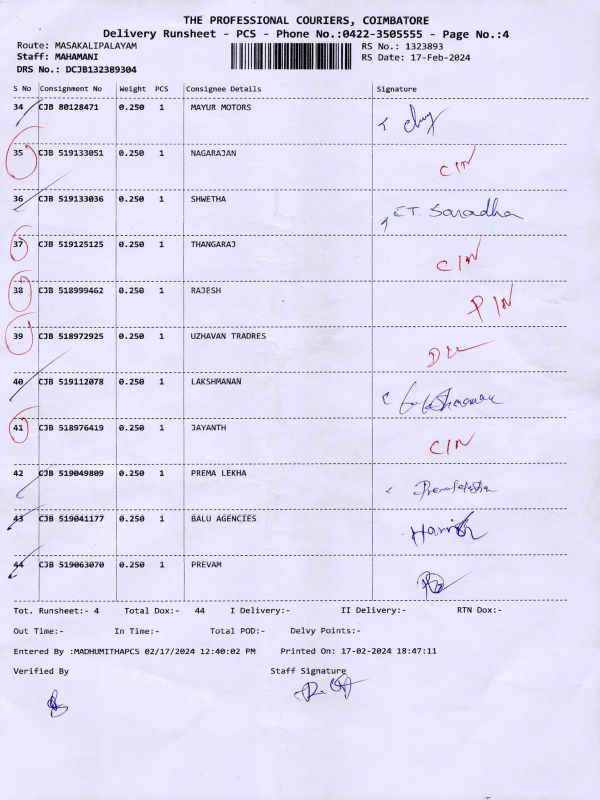 THE PROFESSIONAL COURIERS, COIMBATORE
Delivery Runsheet - PCS - Phone No.:0422-3505555 - Page No.:4
Route: MASAKALIPALAYAM RS No.: 1323893
Staff: MAHAMANI RS Date: 17-Feb-2024
DRS No.: DCJB132389304
S No Consignment No Weight PCS Consignee Details Signature
34 CJB 80128471 0.250 1 MAYUR MOTORS
35 CJB 519133051 0.250 1 NAGARAJAN CIN
36 CJB 519133036 0.250 1 SHWETHA ET. Saradha
37 CJB 519125125 0.250 1 THANGARAJ CIN
38 CJB 518999462 0.250 1 RAJESH PIN
39 CJB 518972925 0.250 1 UZHAVAN TRADRES
40 CJB 519112078 0.250 1 LAKSHMANAN
41 CJB 518976419 0.250 1 JAYANTH CIN
42 CJB 519049809 0.250 1 PREMA LEKHA
43 CJB 519041177 0.250 1 BALU AGENCIES Harish
44 CJB 519063070 0.250 1 PREVAM
Tot. Runsheet:- 4 Total Dox:- 44 I Delivery:- II Delivery:- RTN Dox:-
Out Time:- In Time:- Total POD:- Delvy Points:-
Entered By :MADHUMITHAPCS 02/17/2024 12:40:02 PM Printed On: 17-02-2024 18:47:11
Verified By Staff Signature